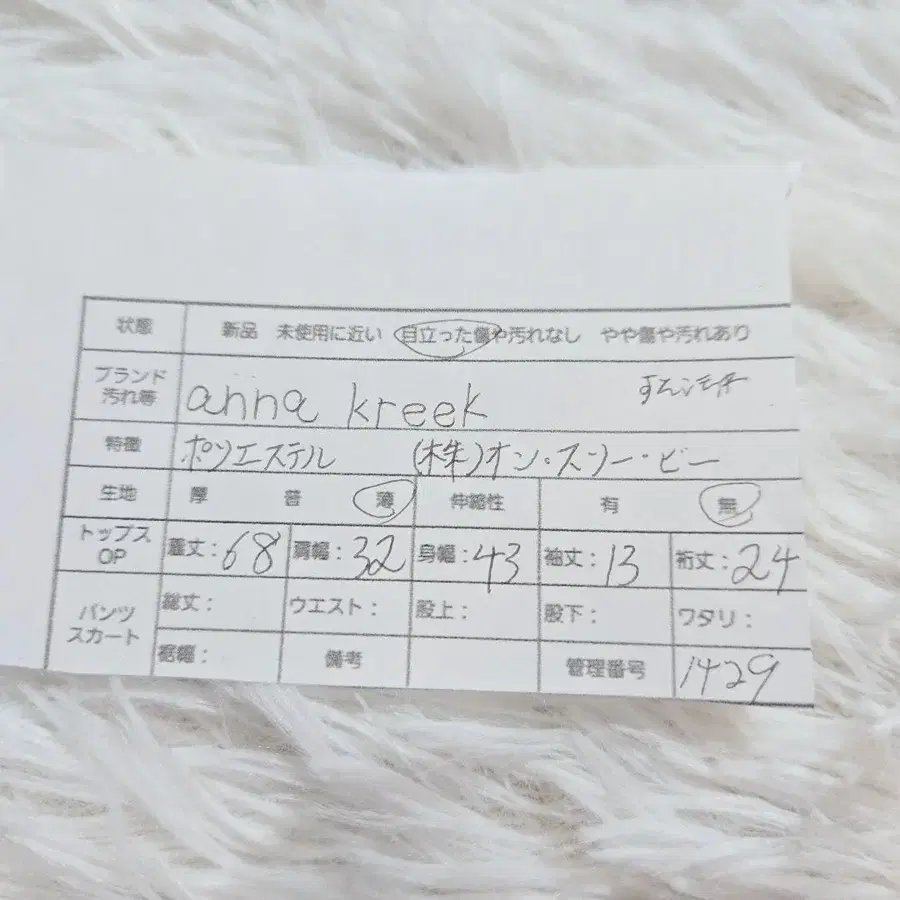 状態 新品 未使用に近い 目立った傷や汚れなし やや傷や汚れあり
ブランド 汚れ等 anna kreek
特徴 ポリエステル (株)オン・スリー・ビー
生地 厚 普 薄 伸縮性 有 無
トップス OP 着丈:68 肩幅:32 身幅:43 袖丈:13 裄丈:24
パンツ スカート 総丈: ウエスト: 股上: 股下: ワタリ:
裾幅: 備考 管理番号 1429